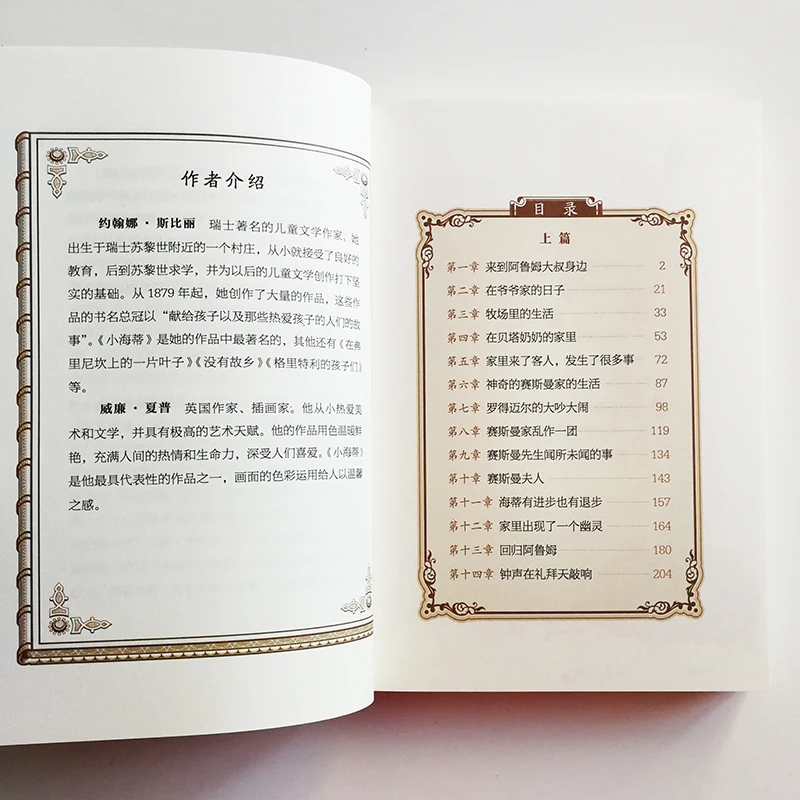 作者介绍
约翰娜·斯比丽 瑞士著名的儿童文学作家。她
出生于瑞士苏黎世附近的一个村庄，从小就接受了良好的
教育，后到苏黎世求学，并为以后的儿童文学创作打下坚
实的基础。从1879年起，她创作了大量的作品，这些作
品的书名总冠以“献给孩子以及那些热爱孩子的人们的故
事”。《小海蒂》是她的作品中最著名的，其他还有《在弗
里尼坎上的一片叶子》《没有故乡》《格里特利的孩子们》
等。
威廉·夏普 英国作家、插画家。他从小热爱美
术和文学，并具有极高的艺术天赋。他的作品用色温暖鲜
艳，充满人间的热情和生命力，深受人们喜爱。《小海蒂》
是他最具代表性的作品之一，画面的色彩运用给人以温馨
之感。
目录
上篇
第一章 来到阿鲁姆大叔身边 2
第二章 在爷爷家的日子 21
第三章 牧场里的生活 33
第四章 在贝塔奶奶的家里 53
第五章 家里来了客人，发生了很多事 72
第六章 神奇的赛斯曼家的生活 87
第七章 罗得迈尔的大吵大闹 98
第八章 赛斯曼家乱作一团 119
第九章 赛斯曼先生闻所未闻的事 134
第十章 赛斯曼夫人 143
第十一章 海蒂有进步也有退步 157
第十二章 家里出现了一个幽灵 164
第十三章 回归阿鲁姆 180
第十四章 钟声在礼拜天敲响 204